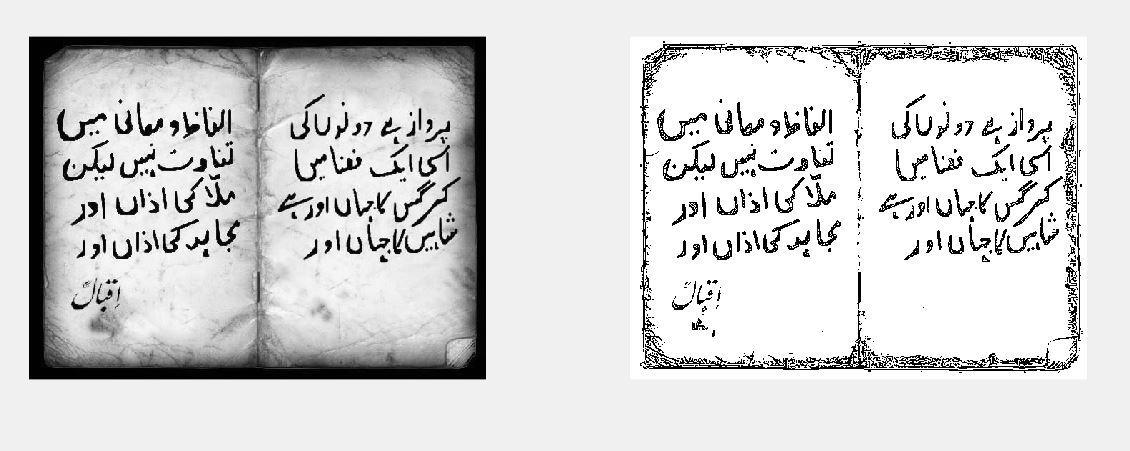 پرواز ہے دونوں کی
اسی ایک فضا میں
کرگس کا جہاں اور ہے
شاہیں کا جہاں اور
الفاظ و معانی میں
تفاوت نہیں لیکن
ملّا کی اذاں اور
مجاہد کی اذاں اور
اقبالؒ
پرواز ہے دونوں کی
اسی ایک فضا میں
کرگس کا جہاں اور ہے
شاہیں کا جہاں اور
الفاظ و معانی میں
تفاوت نہیں لیکن
ملّا کی اذاں اور
مجاہد کی اذاں اور
اقبالؒ